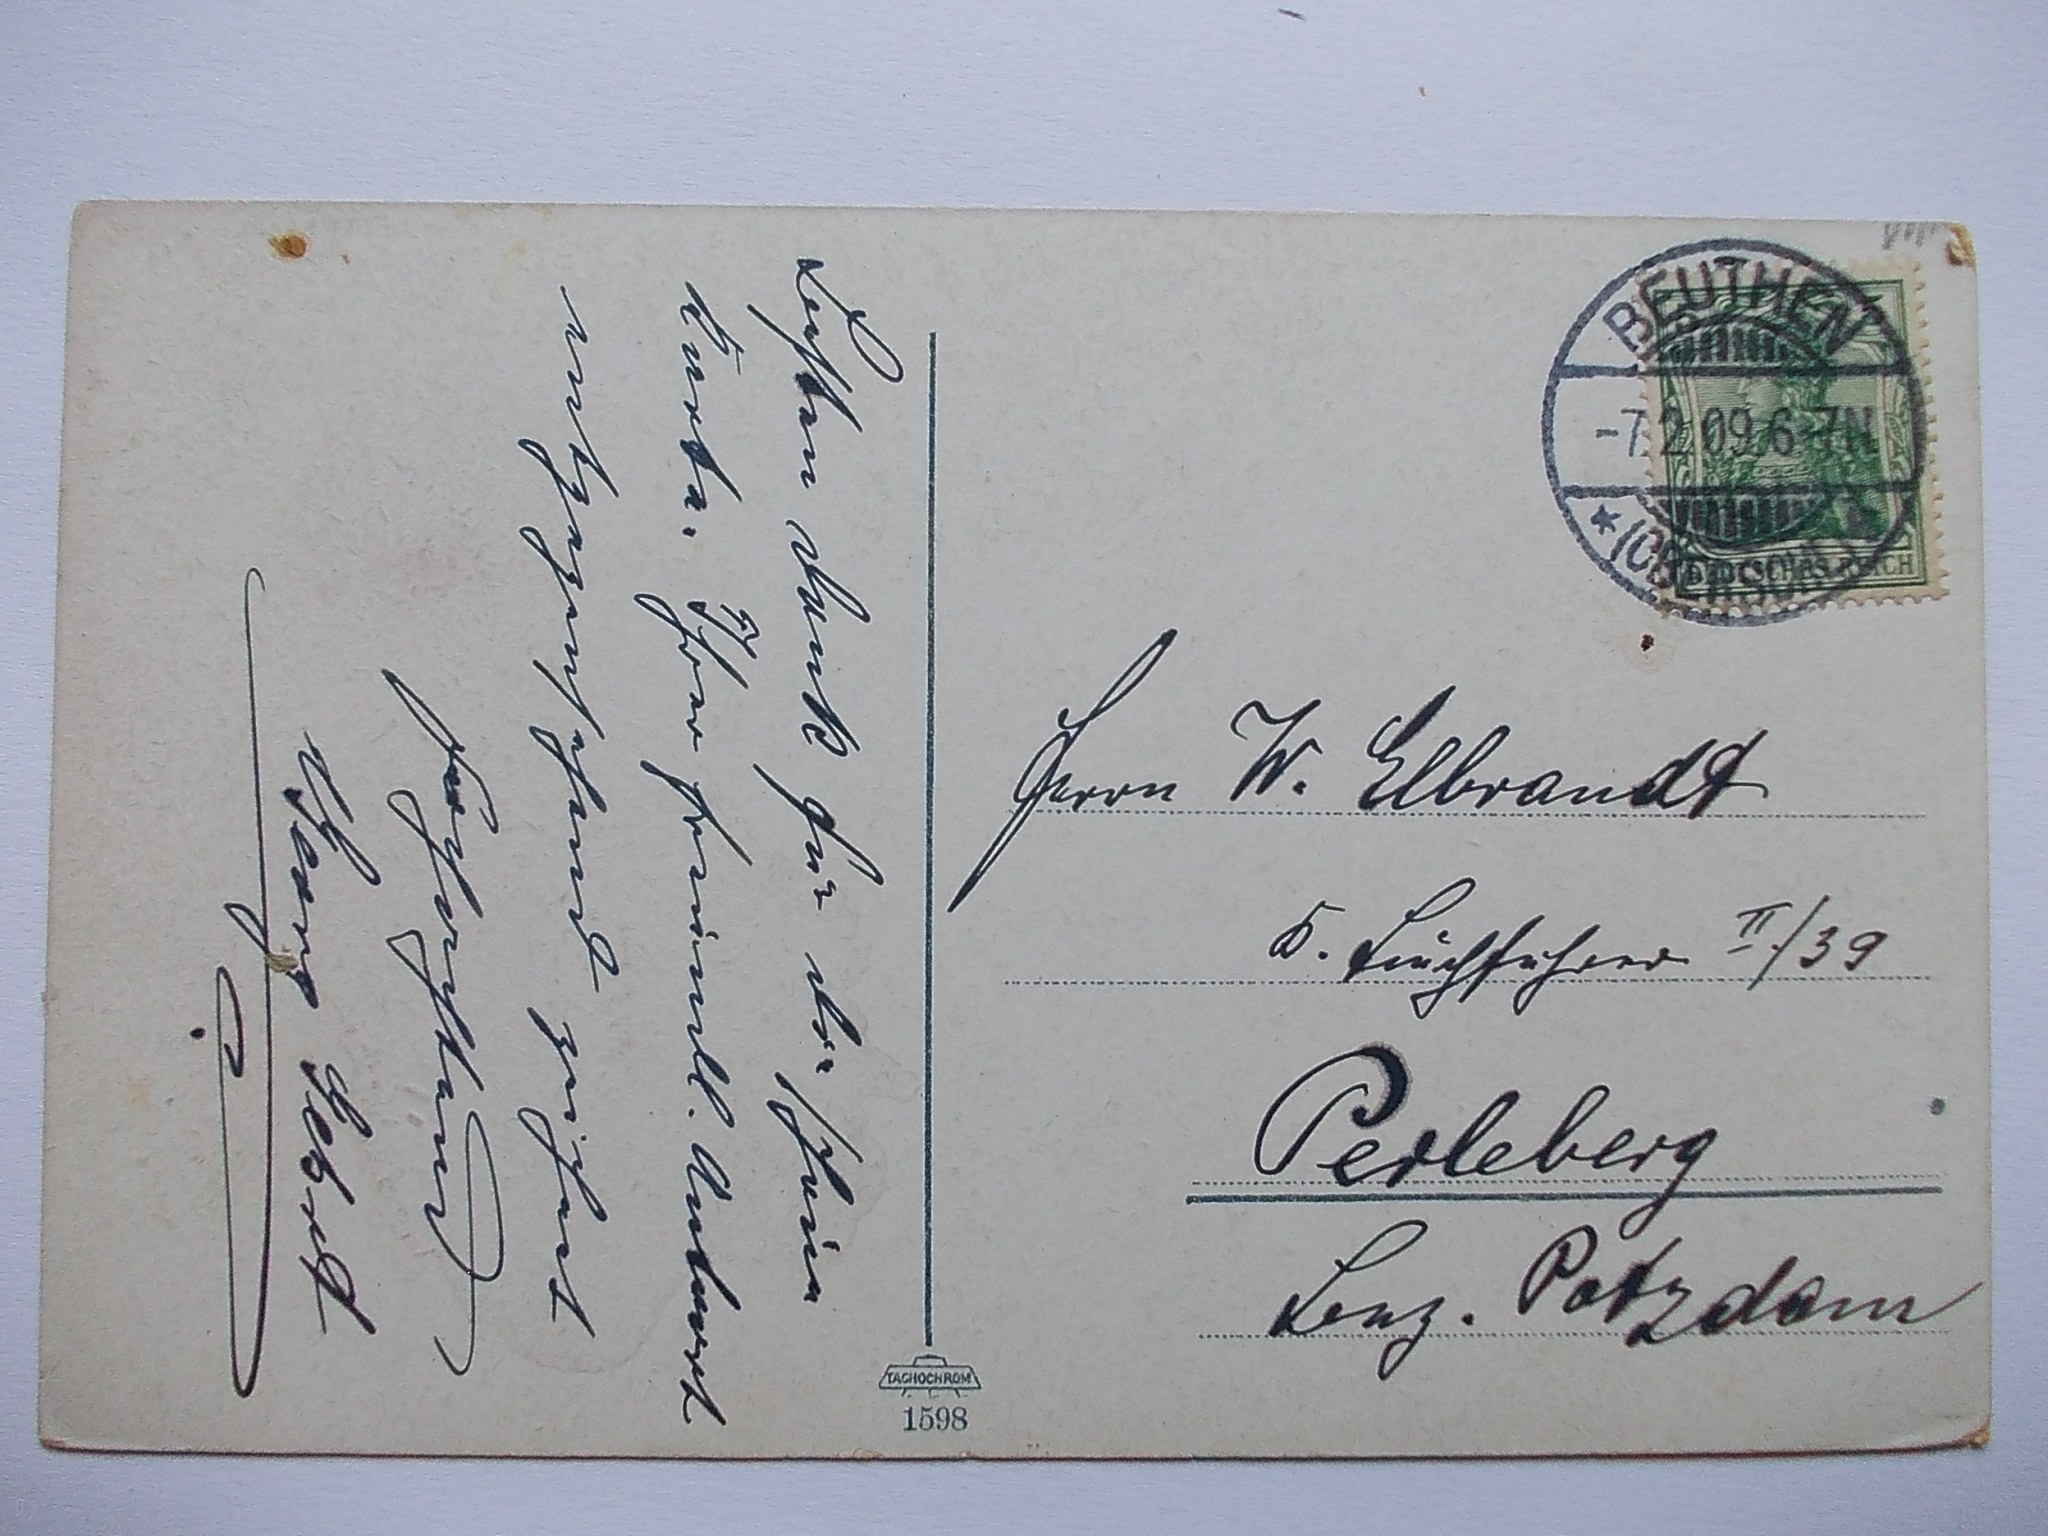 Besten Dank für die schöne
Karte. Ihrer freundl. Antwort
entgegensehend zeichnet
hochachtend
Georg Gebert
BEUTHEN
-7.2.09.6-7N
* (OBERSCHL.)
DEUTSCHES REICH
Herrn W. Elbrandt
II./39
Perleberg
Bez. Potzdam
TACHOCHROM
1598